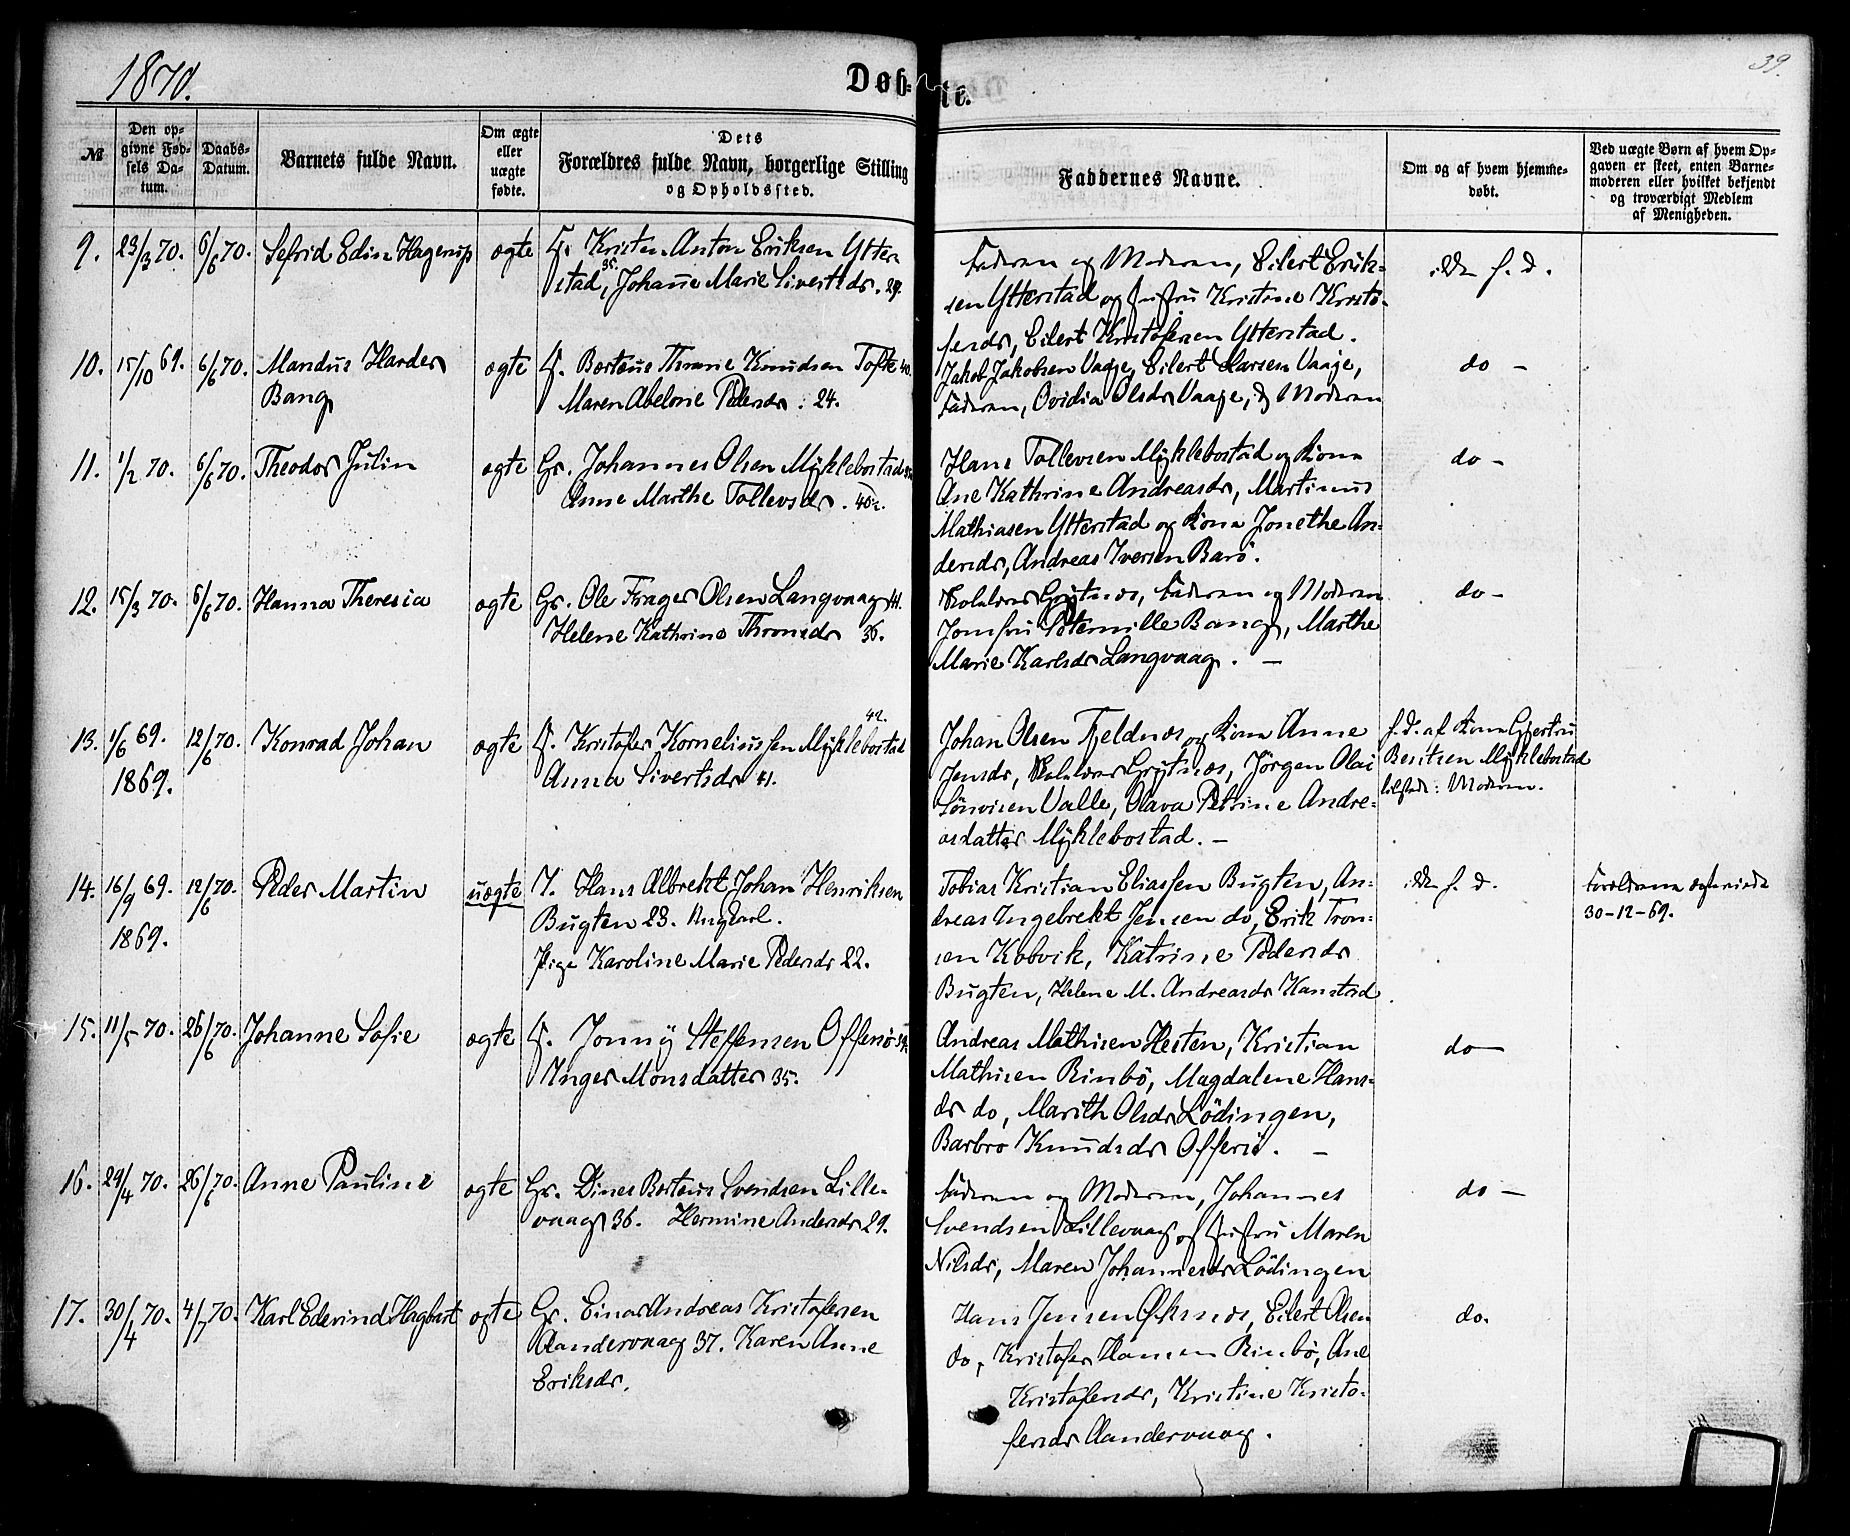 1870.
Døbte.
39.
№
Den opgivne Fødsels Datum.
Daabs-Datum.
Barnets fulde Navn.
Om ægte eller uægte fødte.
Dets Forældres fulde Navn, borgerlige Stilling og Opholdssted.
Faddernes Navne.
Om og af hvem hjemmedøbt.
Ved uægte Børn af hvem Opgaven er skeet, enten Barnemoderen eller hvilket bekjendt og troværdigt Medlem af Menigheden.
9. 23/3 70. 6/6 70. Sefrid Edin Hagerup ægte Kristen Anton Eriksen Ytter-
stad, 35. Johanne Marie Sivertsdr. 29.
Faderen og Moderen, Eilert Erik-
sen Ytterstad og Hustru Kristine Kristo-
fersdr, Eilert Kristofersen Ytterstad.
ikke h. d.
10. 15/10 69. 6/6 70. Mandus Harder
Bang
ægte Berteus Thrane Knudsen Tofte 40.
Maren Abelone Pedersdr. 24.
Jakob Jakobsen Vaaje, Eilert Larsen Vaaje,
Faderen, Ovidia Olsdr Vaaje, & Moderen
do -
11. 1/2 70. 6/6 70. Theodor Julin ægte Gr. Johannes Olsen Myklebostad
Anne Marthe Tollevsdr. 40
Hans Tollevsen Myklebostad og Kona
Ane Kathrine Andreasdr, Martinus
Mathiasen Ytterstad og Kona Jonethe An-
dersdr, Andreas Iversen Barø.
do -
12. 15/3 70. 6/6 70. Hanna Theresia ægte Gr. Ole Frager Olsen Langvaag 41.
Helene Kathrine Thronsdr 36.
Grytnes, Faderen og Moderen
Jomfru Peternille Bang, Marthe
Marie Karlsdr Langvaag. -
do -
13. 1/6 69. 12/6 70. Konrad Johan
1869.
ægte Kristofer Korneliussen Myklebostad 42.
Anna Sivertsdr 41.
Johan Olsen Fjeldnes og Kona Anne
Jensdr, Grytnes, Jörgen Olai
Valle, Olava Petrine Andre-
asdatter Myklebostad. -
h. d. af Kona Gjertru
Beritsen Myklebostad
tilstede: Moderen.
14. 16/9 69. 12/6 70. Peder Martin
1869.
uægte I. Hans Albrekt Johan Henriksen
Bugten 23. Ungkarl.
Pige Karoline Marie Pedersdr 22.
Tobias Kristian Eliassen Bugten, An-
dreas Ingebrekt Jensen do, Erik Tron-
sen Kobvik, Katrine Pedersdr
Bugten, Helene M. Andreasdr Kanstad.
ikke h. d.
Forældrene ægteviede
30-12-69.
15. 11/5 70. 26/6 70. Johanne Sofie ægte Jonny Steffensen Offersø
Inger Monsdatter 35.
Andreas Mathisen Hesten, Kristian
Mathisen Rinbö, Magdalene Hans-
dr do, Marith Olsdr Lödingen,
Barbro Knudsdr Offersö. -
do -
16. 29/4 70. 26/6 70. Anne Pauline ægte Gr. Dines Berteus Svendsen Lille-
vaag 36. Hermine Andersdr 29.
Faderen og Moderen, Johannes
Svendsen Lillevaag og Hustru Maren
Nilsdr, Maren Johannesdr Lödingen
do -
17. 30/4 70. 4/7 70. Karl Edevind Hagbart ægte Gr. Einar Andreas Kristofersen
Aandervaag 37. Karen Anne
Eriksdr.
Hans Jensen Öksnes, Eilert Olsen
do, Kristofer Hansen Rinbö, Ane
Kristofersdr, Kristine Kristo-
fersdr Aandervaag.
do.